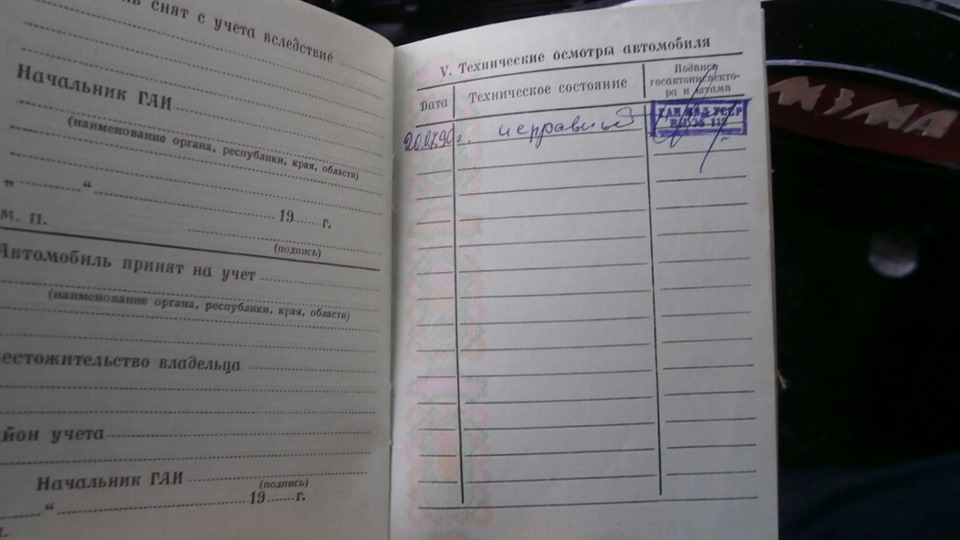 снят с учета вследствие
Начальник ГАИ
(наименование органа, республики, края, области)
„ “ 19 г.
М. П.
(подпись)
Автомобиль принят на учет
(наименование органа, республики, края, области)
естожительство владельца
йон учета
Начальник ГАИ
(подпись)
“ 19 г.
V. Технические осмотры автомобиля
Дата
Техническое состояние
Подпись
госавтоинспекто-
ра и штамп
г. исправный
ГАИ МВД